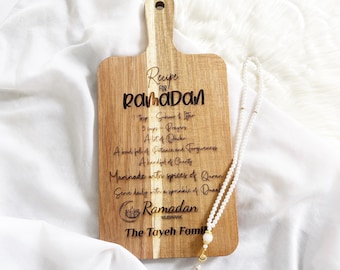 Recipe
FOR
RAMADAN
Suhoor & Iftar
Prayers
A lot of Dhikr
A bowl full of Patience and Forgiveness
A handful of Charity
Marinade with spices of Quran
Serve daily with a sprinkle of Duaa
Ramadan
MUBARAK
The Tayeh Family